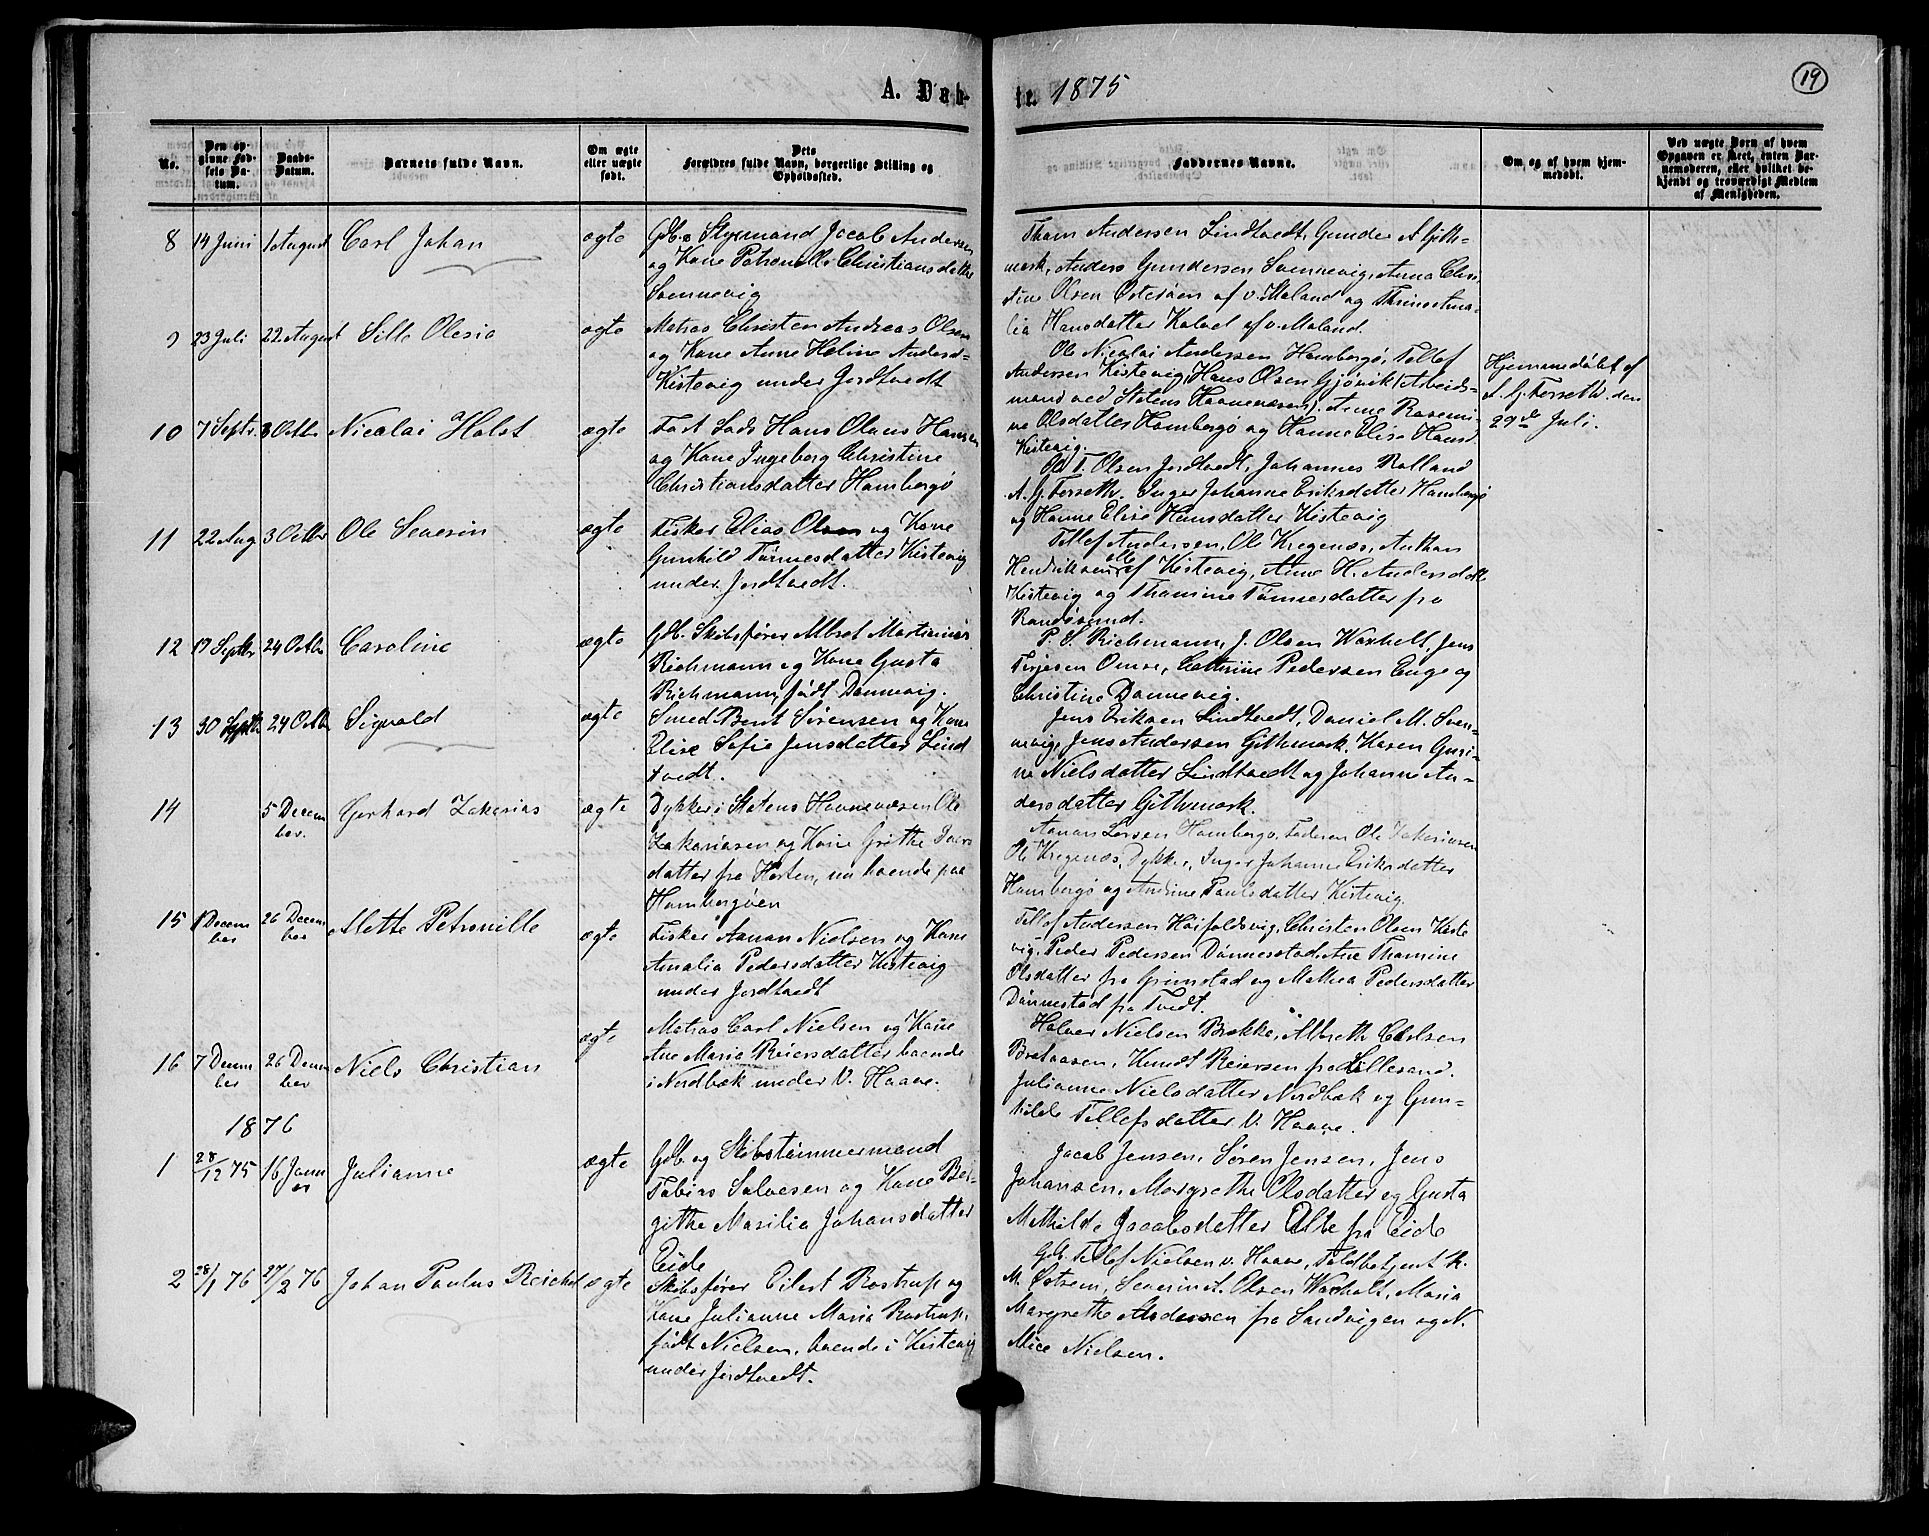 A. Døb-
te. 1875
19
No.
Den op-
givne Fød-
sels Da-
tum.
Daabs-
Datum.
Barnets fulde Navn.
Om ægte
eller uægte
født.
Dets
Forældres fulde Navn, borgerlige Stilling og
Opholdssted.
Faddernes Navne.
Om og af hvem hjem-
medøbt.
Ved uægte Børn af hvem
Opgaven er skeet, enten Bar-
nemoderen, eller hvilket be-
kjendt og troværdigt Medlem
af Menigheden.
8 14 Juni 1 August Carl Johan ægte
Gdb. Styrmand Jacob Andersen
og Kone Petronelle Christiansdatter
Svennevig
Andersen Lindtvedt, Gunder A. Gith-
mark, Anders Gundersen Svennevig, Anna Chri-
stine Olsen Østerøen af v. Moland og Thrine Ama-
lia Hansdatter Kalvel af v. Moland.
9 23 Juli 22 August Sille Olesia ægte
Matros Christen Andreas Olsen
og Kone Anne Heline Andersd-
Kistevig under Jordtvedt
Ole Nicolai Andersen Hombergø, Tellef
Andersen Kistevig, Hans Olsen Gjøvik (Arbeids-
mand ved Statens Havnevæsen), Anne Rasmi-
ne Olsdatter Hombergø og Hanne Elise Hansd.
Kistevig.
Hjemmedøbt af
A. G. Forseth den
29de Juli.
10 7 Septr. 3 Octbr Nicolai Holst ægte
Fast Lods Hans Olaus Hansen
og Kone Ingeborg Christine
Christiansdatter Hombergø
Ole T. Olsen Jordtvedt, Johannes Rolland
A. G. Forseth. Inger Johanne Eriksdatter Hombergø
og Hanne Elise Hansdatter Kistevig
11 22 Aug 3 Octbr Ole Severin ægte
Fisker Elias Olsen og Kone
Gunhild Tønnesdatter Kistevig
under Jordtvedt.
Tellef Andersen, Ole Kregenæs, Anthon
Hendriksen alle af Kistevig, Anne H. Andersdatter
Kistevig og Thomine Tønnesdatter fra
Randøsund.
12 17 Septbr 24 Octbr Caroline ægte
Gdb. Skibsfører Albret Martinius
Richmann og Kone Gusta
Richmann, født Dannevig.
P. S. Richmann, J. Olsen Waxholt, Jens
Terjesen Omre, Cathrine Pedersen Enge og
Christine Dannevig.
13 30 Septbr 24 Octbr Sigvald ægte
Smed Bent Sørensen og Kone
Elise Sofie Jensdatter Lind
tvedt.
Jens Eriksen Lindtvedt, Daniel M. Sven-
nevig, Jens Andersen Githmark, Karen Guri-
ne Nielsdatter Lindtvedt og Johanne An-
dersdatter Githmark.
14 5 Decem
ber. Gerhard Zakarias ægte
Dykker i Statens Havnevæsen Ole
Zakariasen og Kone Grethe
datter fra Horten, nu boende paa
Hombergøen
Aanan Larsen Hombergø, Faderen Ole Zakariasen
Ole Kregenæs, Dykker, Inger Johanne Eriksdatter
Hombergø og Andrine Paulsdatter Kistevig.
15 1 Decem
ber 26 Decem
ber Alette Petronille ægte
Fisker Aanan Nielsen og Kone
Amalia Pedersdatter Kistevig
under Jordtvedt
Tellef Andersen Høifoldsvig, Christen Olsen Kiste
vig, Peder Pedersen Dønnestad, Ane Thomine
Olsdatter fra Grimstad og Mathea Pedersdatter
Dønnestad fra Tvedt.
16 7 Decem
ber 26 Decem
ber Niels Christian ægte
Matros Carl Nielsen og Kone
Ane Maria Reiersdatter boende
i Nordbæk under V. Haave.
Halvor Nielsen Brække, Albreth Carlsen
Bretaasen, Knudt Reiersen fra Lillesand.
Julianne Nielsdatter Nordbæk og Gun-
hilde Tellefsdatter V. Haave.
1876
1 28/12 75 16 Janu
ar Julianne ægte
Gdb. og Skibstømmermand
Tobias Salvesen og Kone Ber-
githe Masilia Johansdatter
Eide
Jacob Jensen, Søren Jensen, Jens
Johansen, Margrethe Olsdatter og Gusta
Mathilde Jacobsdatter Alle fra Eide
2 28/1 76 27/2 76 Johan Paulus Reichel ægte
Skibsfører Eilert Rostrup og
Kone Julianne Maria Rostrup,
født Nielsen, boende i Kistevig
under Jordtvedt.
Gdb. Tellef Nielsen v. Haave, Toldbetjent K.
M. Østrem, Severin A. Olsen Waxholt, Maria
Margrethe Andersen fra Sandvigen og N.
Alice Nielsen.